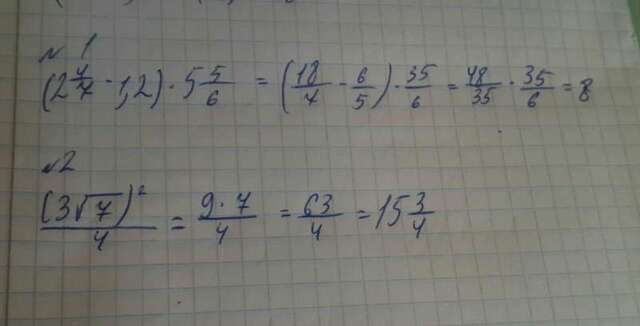 № 1
(2 4/7 - 1,2) · 5 5/6 = (18/7 - 6/5) · 35/6 = 48/35 · 35/6 = 8
№2
(3√7)²/4 = 9·7/4 = 63/4 = 15 3/4